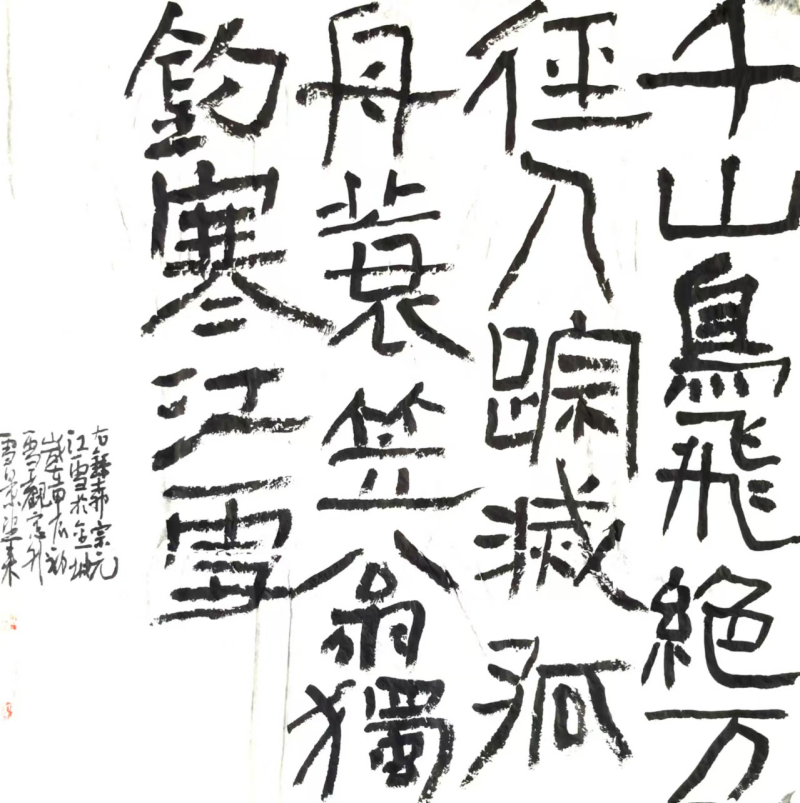 千山鳥飛絕万
徑人踪滅孤
舟蓑笠翁獨
釣寒江雪
右錄柳宗元
江雪於金城
歲在甲辰初
雪觀
雪景